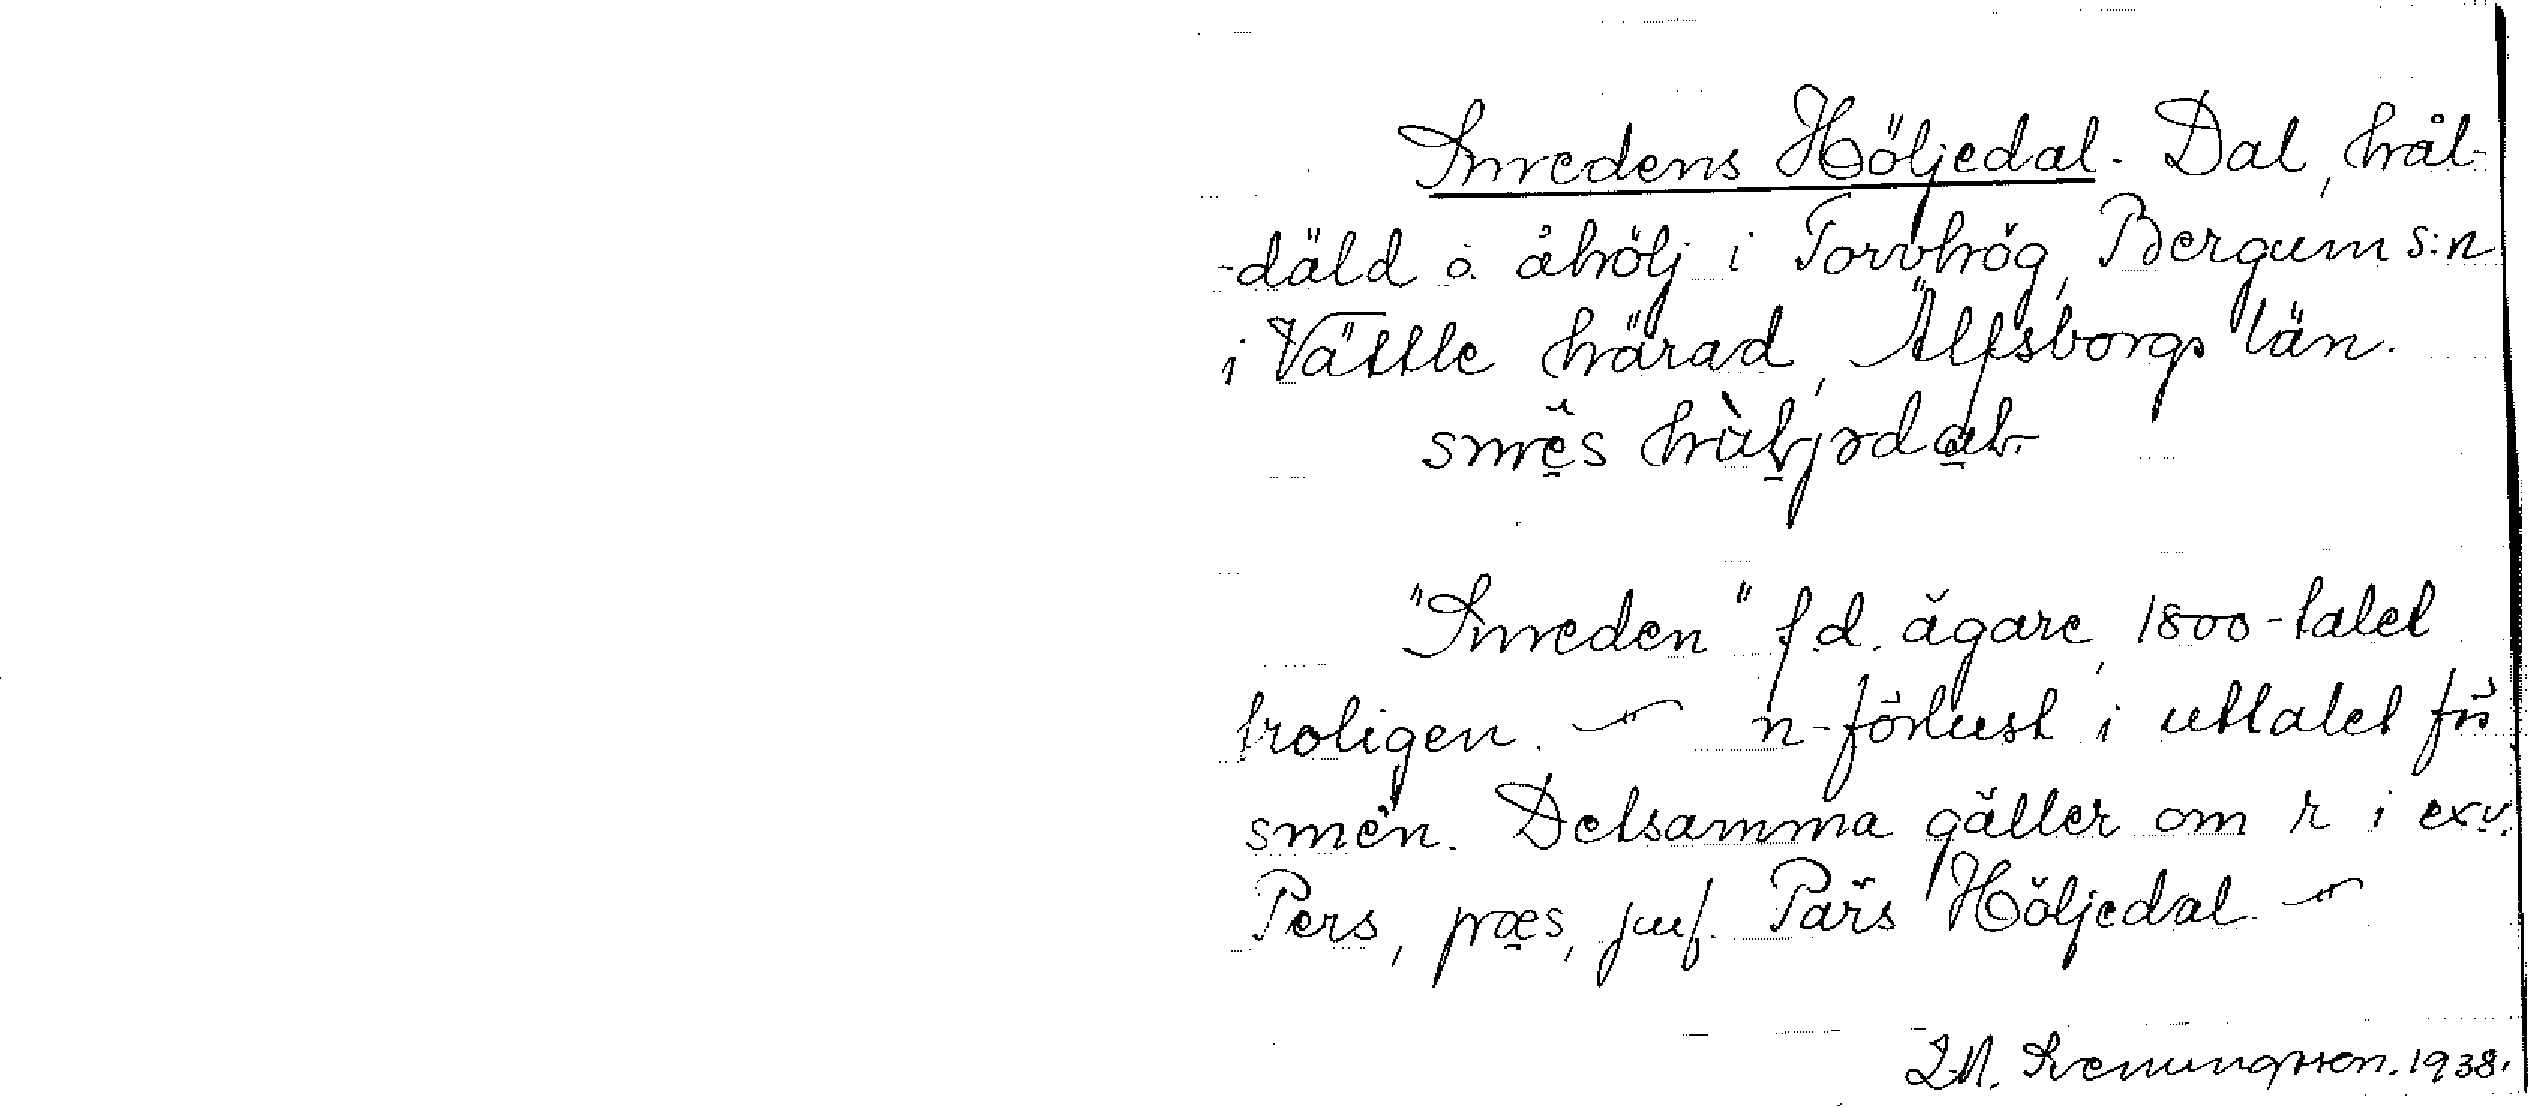 Smedens Höljedal. Dal, hål-
-däld å åhölj i Torvhög, Bergum s:n
i Vättle härad, Älfsborgs län.
"Smeden" f.d. ägare, 1800-talet
troligen. — n-förlust i uttalet
smen. Detsamma gäller om r i exv.
Pers, pæs, jmf. Pärs Höljedal. —
1938.